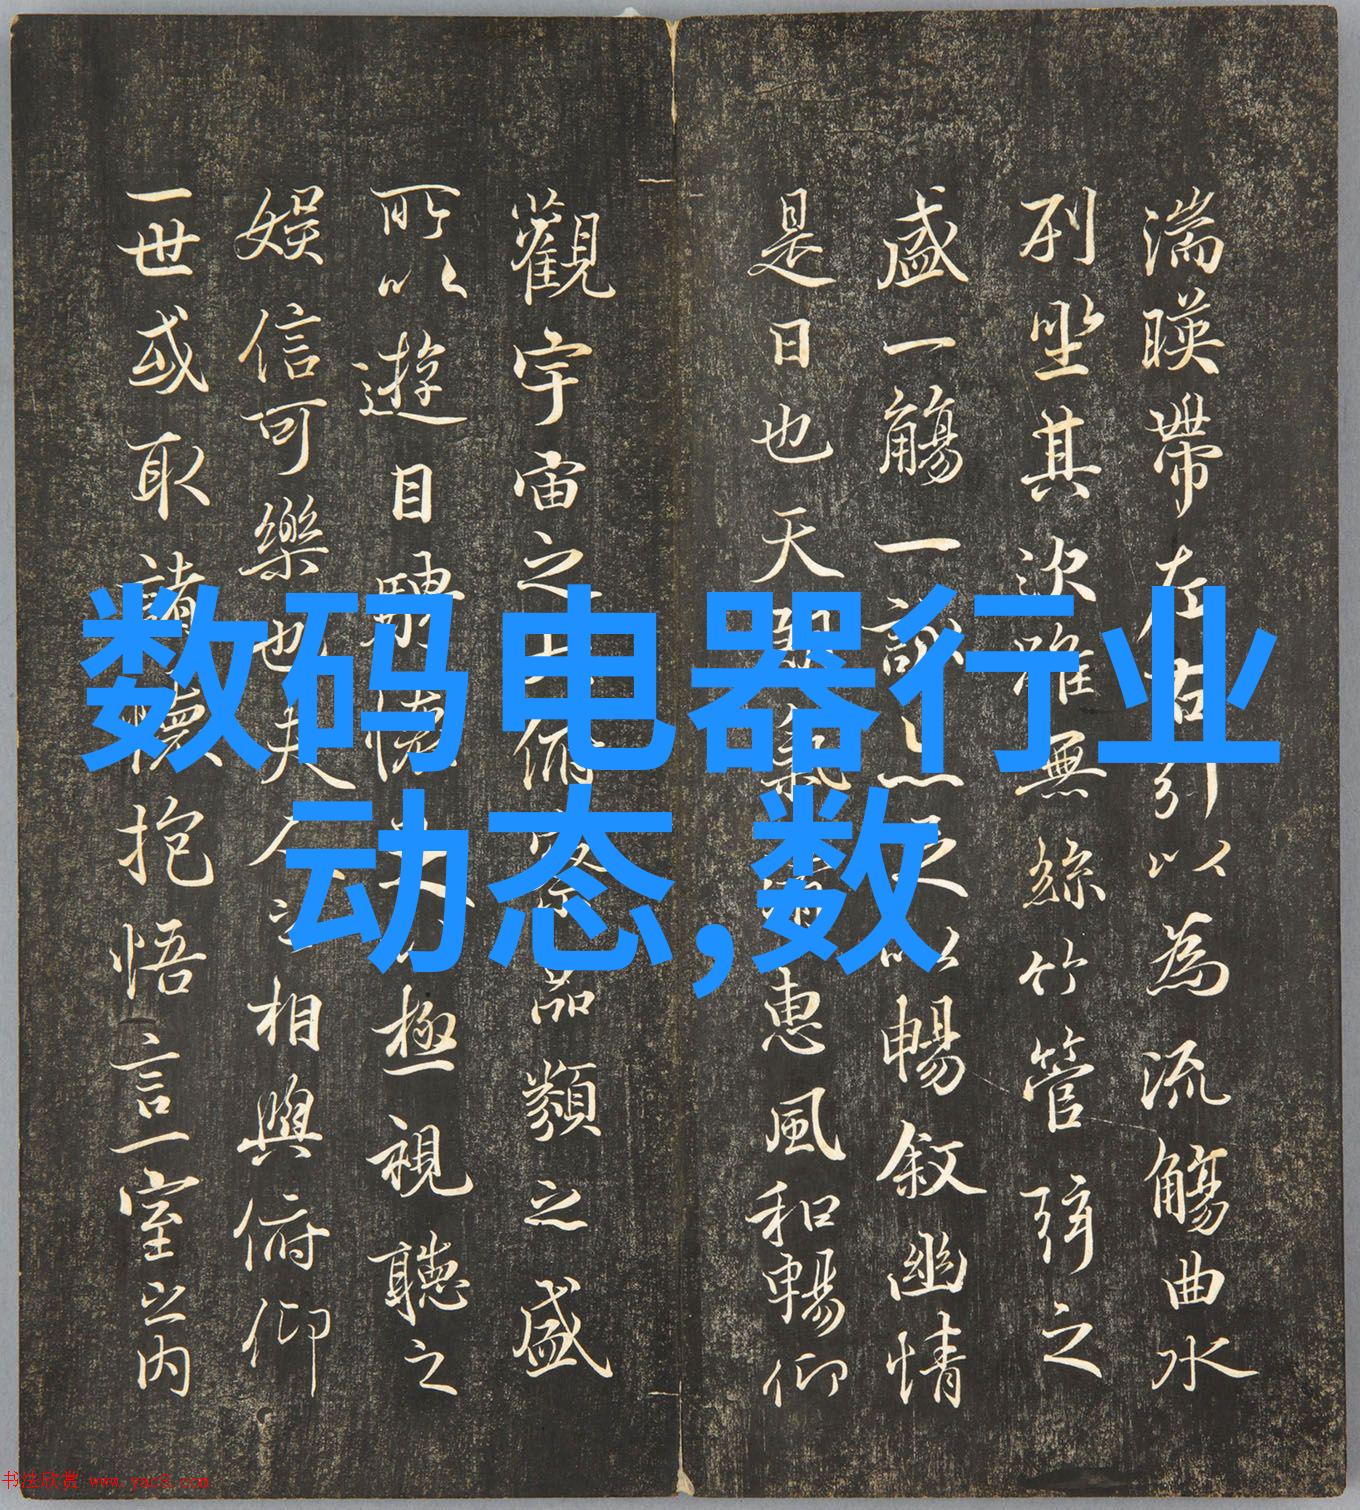 数码电器行业
动态,数
湍暎帶左右引以為流觴曲水
列坐其次雖無絲竹管弦之
盛一觴一詠亦足以暢敘幽情
是日也天朗氣清惠風和暢仰
觀宇宙之大俯察品類之盛
所以遊目騁懷足以極視聽之
娛信可樂也夫人之相與俯仰
一世或取諸懷抱悟言一室之内
书法欣赏 www.yac8.com